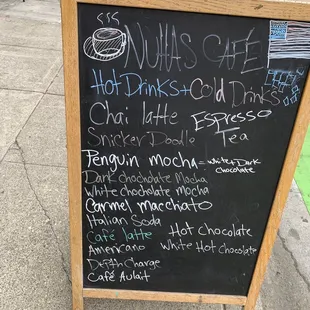 NUHAS CAFÉ
Hot Drinks + Cold Drinks
Chai latte Espresso
Snicker Doodle Tea
Penguin mocha = white + Dark chocolate
Dark chocholate Mocha
White chocholate mocha
Carmel macchiato
Italian Soda
Café latte Hot chocolate
Americano White Hot chocolate
Depth Charge
Café Aulait